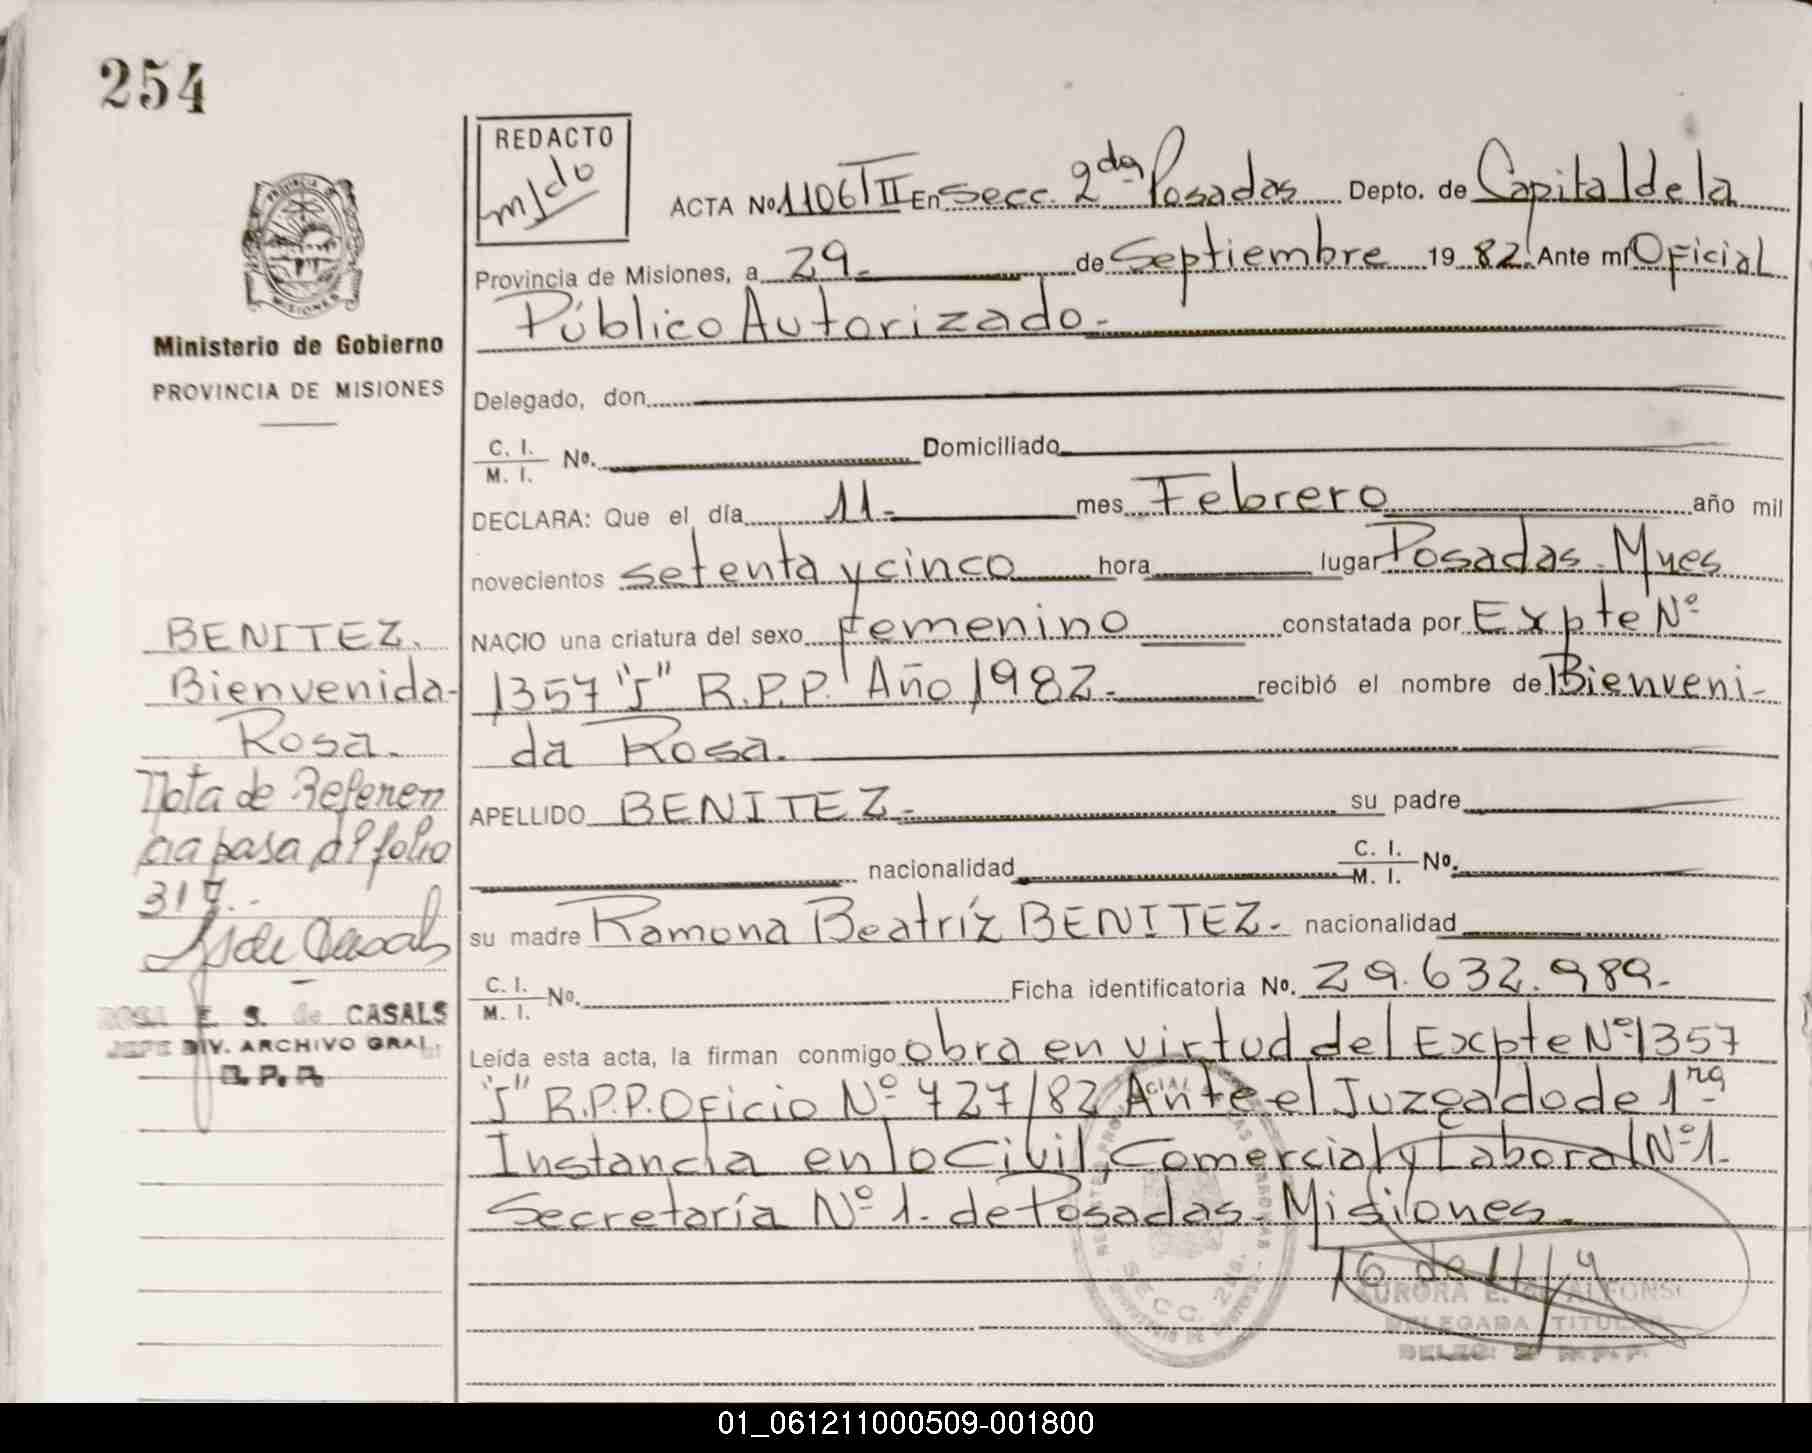 254
REDACTO
m/do
PROVINCIA DE MISIONES
Ministerio de Gobierno
PROVINCIA DE MISIONES
ACTA Nº 1106/TII En Secc. 2da Posadas Depto. de Capital de la
Provincia de Misiones, a 29.- de Septiembre 1982. Ante mí Oficial
Público Autorizado.-
Delegado, don
C. I. / M. I. Nº. Domiciliado
DECLARA: Que el día 11.- mes Febrero año mil
novecientos setenta y cinco hora lugar Posadas. Mnes
NACIO una criatura del sexo femenino constatada por Expte Nº
1357 "J" R.P.P. Año 1982.- recibió el nombre de Bienveni-
da Rosa.
APELLIDO BENITEZ.- su padre
nacionalidad C. I. / M. I. Nº.
su madre Ramona Beatríz BENITEZ.- nacionalidad
C. I. / M. I. Nº. Ficha identificatoria Nº. 29.632.989.-
Leída esta acta, la firman conmigo obra en virtud del Expte Nº 1357
"J" R.P.P. Oficio Nº 727/82 Ante el Juzgado de 1ra
Instancia en lo Civil, Comercial y Laboral Nº 1.
Secretaría Nº 1. de Posadas. Misiones.
AURORA E. de ALFONSO
DELEGADA TITULAR
SECC. 2da.
BENITEZ.
Bienvenida
Rosa.
Nota de Referen
cia pasa al folio
317.-
ROSA E. S. de CASALS
JEFE DIV. ARCHIVO GRAL.
R. P. P.
01_061211000509-001800